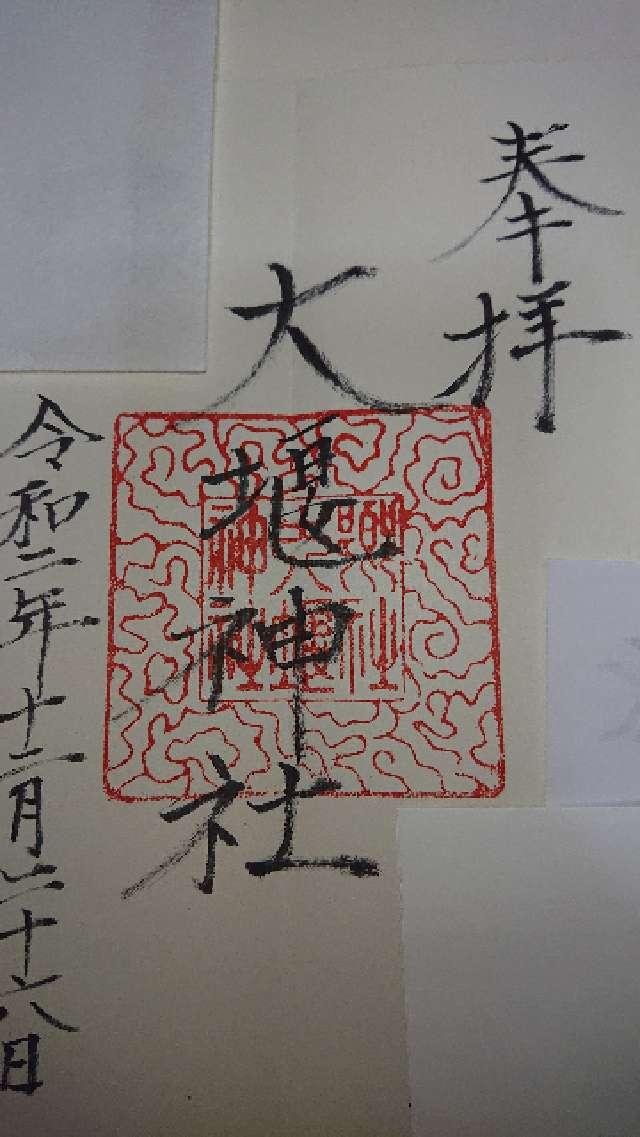 奉拝
大堰神社
令和二年十二月二十六日